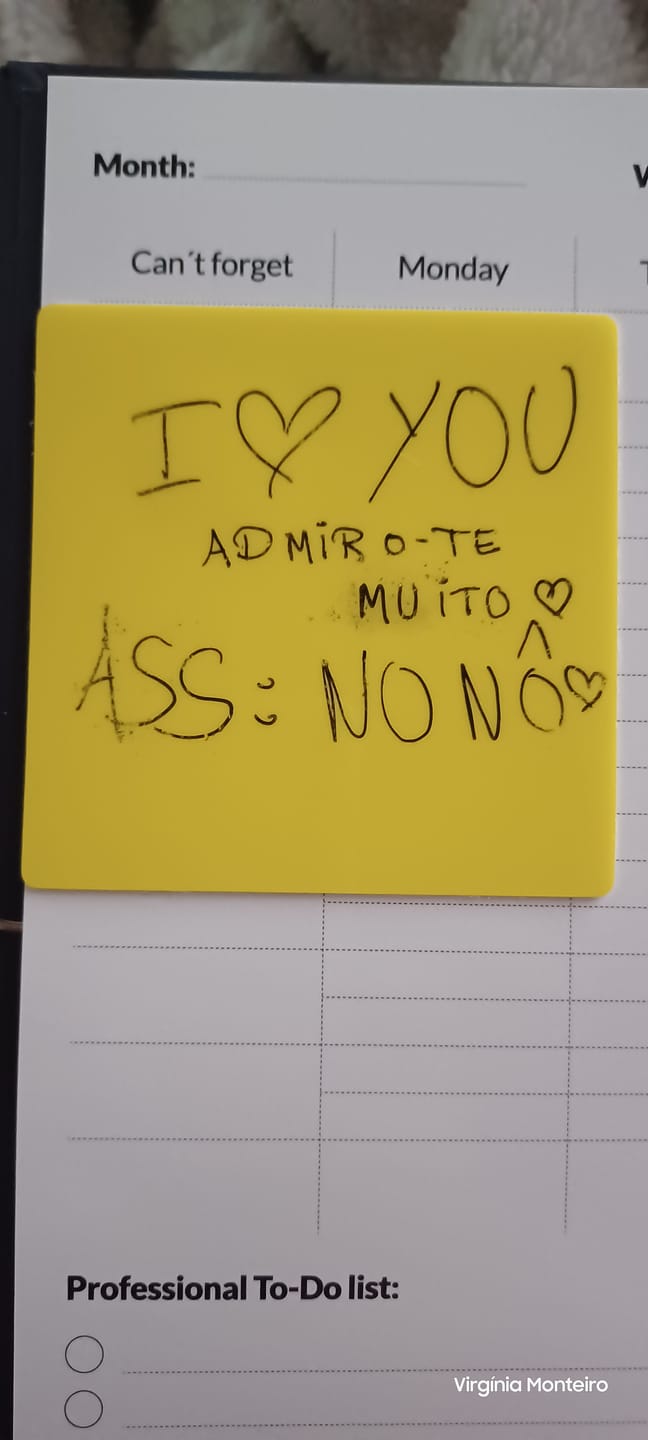 Month:
Can´t forget
Monday
I ♡ YOU
ADMIRO-TE
MUITO ♡
ASS: NONÔ ♡
Professional To-Do list:
Virgínia Monteiro